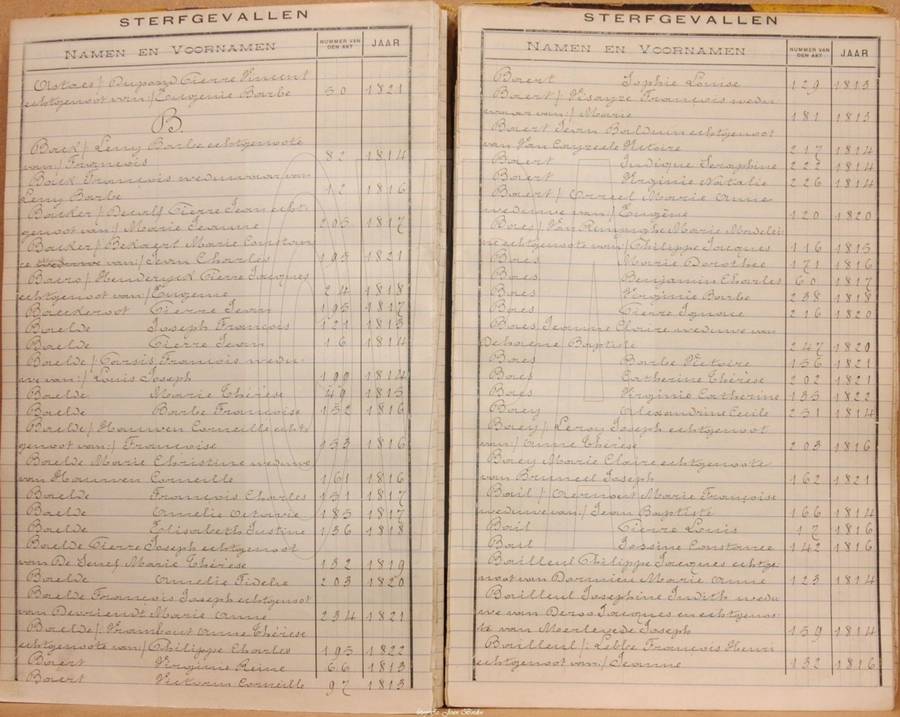 STERFGEVALLEN
NAMEN EN VOORNAMEN NUMMER VAN DEN AKT JAAR
Pierre Vincent
echtgenoot van / Eugenie Barbe 50 1821
B.
Boeck / Leny Barbe echtgenoote
van / François 82 1814
Boeck François weduwaar van
Leny Barbe 12 1816
Pierre Jean echt-
genoot van / Marie Jeanne 205 1817
Baeker / Bekaert Marie Constan-
ce van / Jean Charles 195 1821
Baers / Henderyck Pierre Jacques
echtgenoot van / Eugenie 24 1818
Baeckeroot Pierre Jean 195 1817
Baelde Joseph François 121 1813
Baelde Pierre Jean 16 1814
Baelde / Carsis François wedu-
we van / Louis Joseph 199 1814
Baelde Marie Thérèse 49 1815
Baelde Barbe Françoise 152 1816
Baelde / Hauwen Corneille echt-
genoot van / Françoise 153 1816
Baelde Marie Christine weduwe
van Hauwen Corneille 161 1816
Baelde François Charles 151 1817
Baelde Amelie Octavie 185 1817
Baelde Elisabeth Justine 136 1818
Baelde Pierre Joseph echtgenoot
van Marie Thérèse 132 1819
Baelde Amelie Fidelie 203 1820
Baelde François Joseph echtgenoot
van Devriendt Marie Anne 234 1821
Baelde / Anne Thérèse
echtgenoote van / Philippe Charles 195 1822
Baert Virginie Reine 66 1813
Baert Victoria Corneille 97 1813
STERFGEVALLEN
NAMEN EN VOORNAMEN NUMMER VAN DEN AKT JAAR
Baert Sophie Louise 129 1813
Baert / François wedu-
waar van / Marie 181 1813
Baert Jean Balduin echtgenoot
van Van Victoire 217 1814
Baert Seraphine 222 1814
Baert Virginie Natalie 226 1814
Baert / Marie Anne
weduwe van / Eugène 120 1820
Baes / Marie Madelei-
ne echtgenoote van / Philippe Jacques 116 1815
Baes Marie Dorothee 171 1816
Baes Benjamin Charles 60 1817
Baes Virginie Barbe 238 1818
Baes Pierre Ignace 216 1820
Baes Jeanne Claire weduwe van
Baptiste 247 1820
Baes Barbe Victoire 156 1821
Baes Catherine Thérèse 202 1821
Baes Virginie Catherine 135 1822
Baey Alexandrine Cecile 251 1814
Baey / Leroy Joseph echtgenoot
van / Anne Thérèse 203 1816
Baey Marie Claire echtgenoote
van Bruneel Joseph 162 1821
Bail / Aernout Marie Françoise
weduwe van / Jean Baptiste 166 1814
Bail Pierre Louis 17 1816
Bail Constance 142 1816
Bailleul Philippe Jacques echtge-
noot van Dormieu Marie Anne 123 1814
Bailleul Josephine Judith wedu-
we van Jacques en echtgenoo-
te van Meerlevede Joseph 159 1814
Bailleul / Lebbe François Henri
echtgenoot van / Jeanne 132 1816